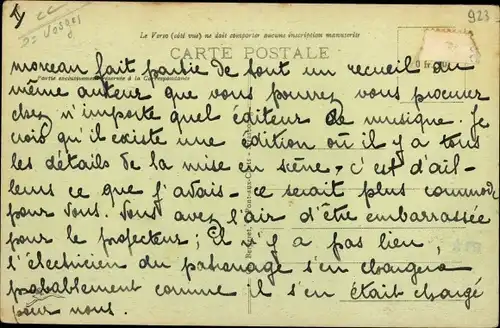 II
CC
Ds Vosges
923
Le Verso (côté vue) ne doit comporter aucune inscription manuscrite
CARTE POSTALE
morceau fait partie de tout un recueil du
Partie exclusivement réservée à la Correspondance
même auteur que vous pourrez vous procurer
chez n'importe quel éditeur de musique. Je
crois qu'il existe une édition où il y a tous
les détails de la mise en scène, c'est d'ail-
leurs ce que j'avais - ce serait plus commode
pour vous. Vous avez l'air d'être embarrassée
pour le projecteur; Il n'y a pas lieu,
l'électricien du patronage s'en chargera
probablement comme il s'en était chargé
pour nous.